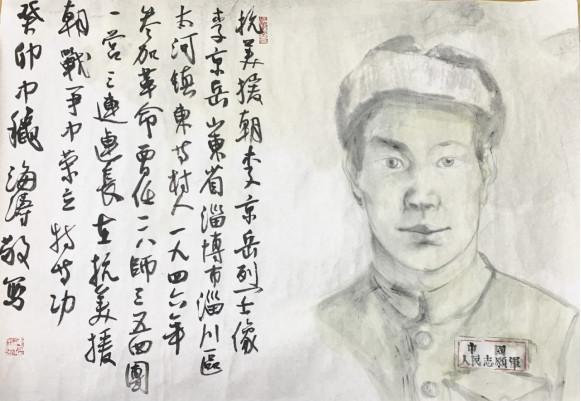 抗美援朝李京岳烈士像
李京岳山東省淄博市淄川區
太河镇東等村人一九四六年
参加革命曾任一一八師三五四團
一营三連連長在抗美援
朝戰争中荣立特等功
癸卯中穐海濤敬写
中國
人民志願軍